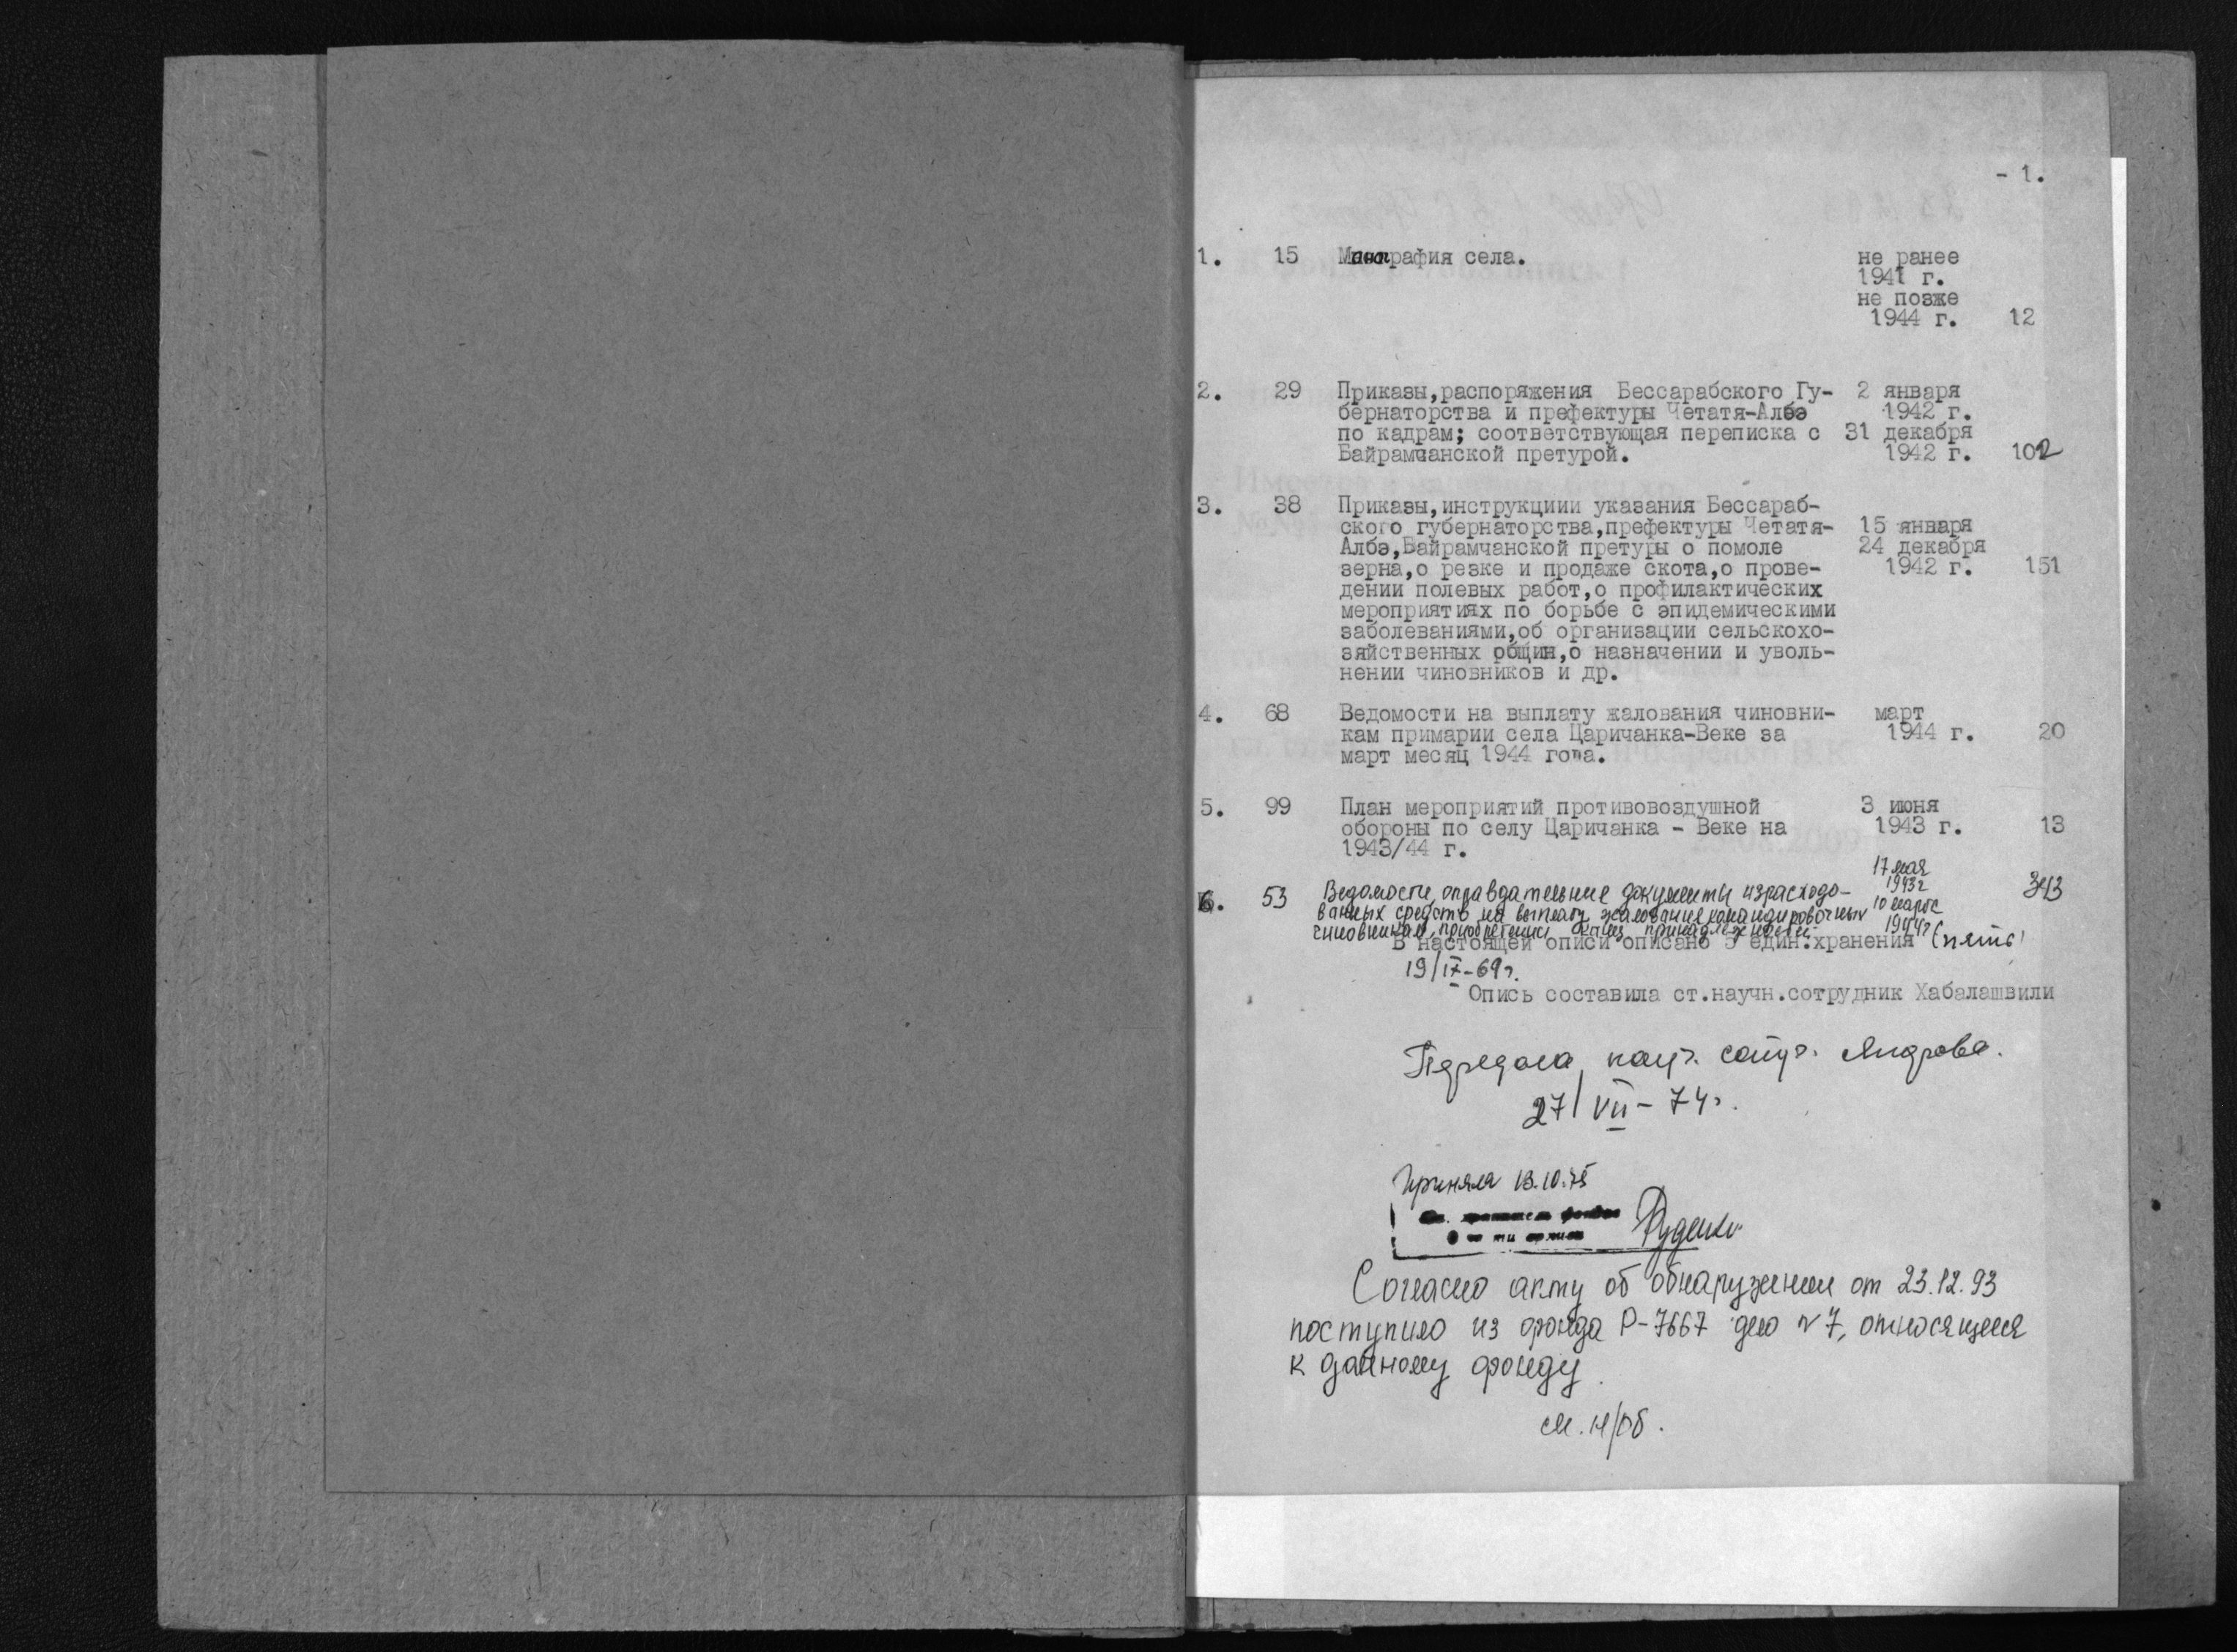 - 1.
1. 15 Монография села. не ранее
1941 г.
не позже
1944 г. 12
2. 29 Приказы,распоряжения Бессарабского Гу- 2 января
бернаторства и префектуры Четатя-Албэ 1942 г.
по кадрам; соответствующая переписка с 31 декабря
Байрамчанской претурой. 1942 г. 102
3. 38 Приказы,инструкциии указания Бессараб-
ского губернаторства,префектуры Четатя- 15 января
Албэ,Байрамчанской претуры о помоле 24 декабря
зерна,о резке и продаже скота,о прове- 1942 г. 151
дении полевых работ,о профилактических
мероприятиях по борьбе с эпидемическими
заболеваниями,об организации сельскохо-
зяйственных общин,о назначении и уволь-
нении чиновников и др.
4. 68 Ведомости на выплату жалования чиновни- март
кам примарии села Царичанка-Веке за 1944 г. 20
март месяц 1944 года.
5. 99 План мероприятий противовоздушной 3 июня
обороны по селу Царичанка - Веке на 1943 г. 13
1943/44 г.
17 мая
6. 53 Ведомости, оправдательные документы израсходо- 1943г 343
ванных средств на выплату жалования командировочных 10 марта
чиновникам, приобретение канц принадлежностей 1944г
В настоящей описи описано 5 един.хранения (пять)
19/IX-69г.
Опись составила ст.научн.сотрудник Хабалашвили
Передала науч. сотр.
27/VII-74г.
Приняла 13.10.75
Руденко
Согласно акту об обнаружении от 23.12.93
поступило из фонда Р-7667 дело №7, относящееся
к данному фонду.
см. н/об.